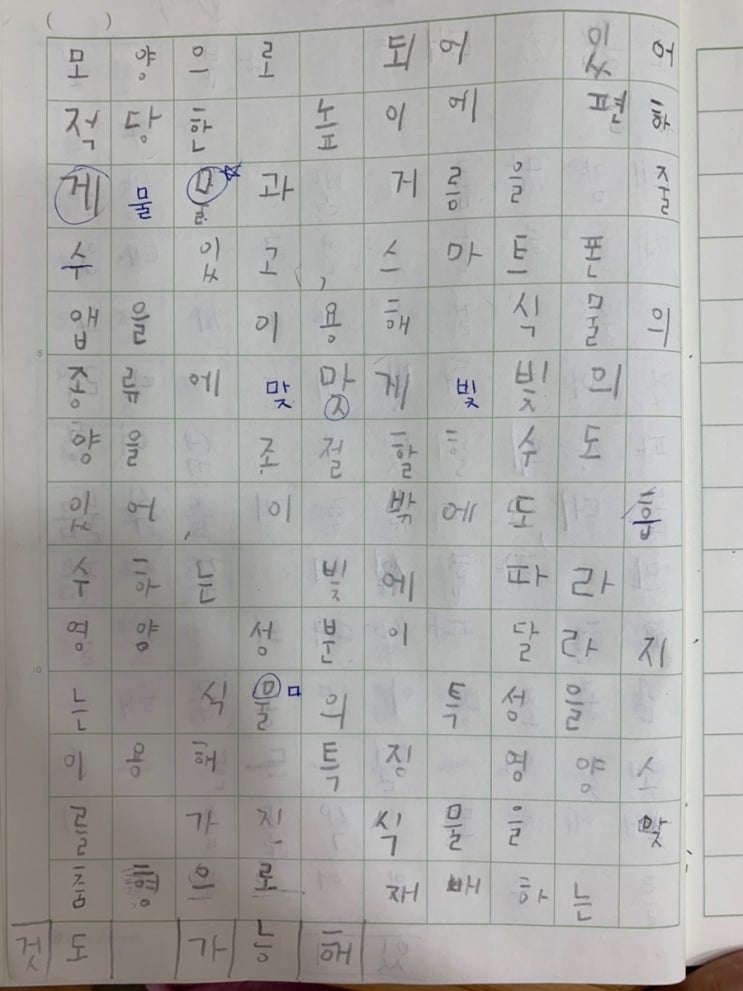 ( )
모양으로 되어 있어
적당한 높이에 편하
게 물 물과 거름을 줄
수 있고, 스마트폰
앱을 이용해 식물의
종류에 맞 마게 빛 빛의
ㅈ
양을 조절할 수도
있어, 이 밖에도, 흡
수하는 빛에 따라
영양 성분이 달라지
는 식물ㅁ의 특성을
이용해 특징 영양소
를 가진 식물을 맞
춤형으로 재배하는
것도 가능해
5
10